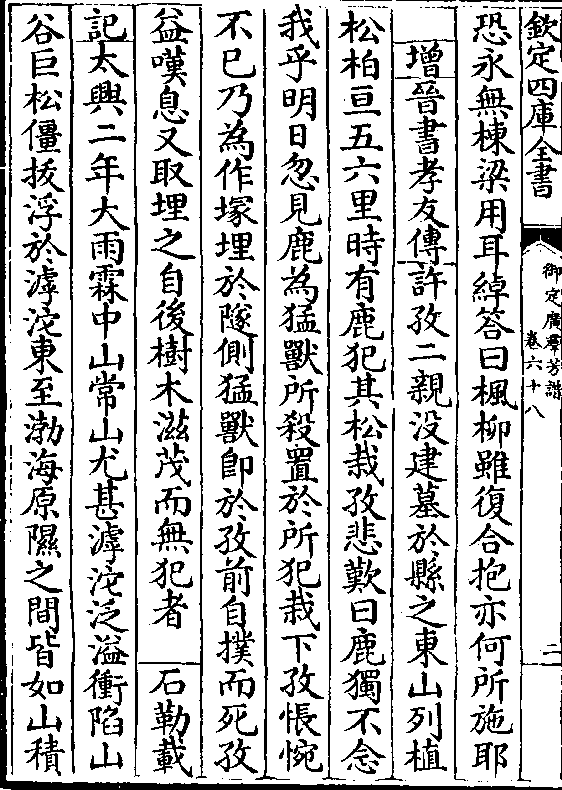 欽定四庫全書
御定廣羣芳譜
卷六十八
二
恐永無棟梁用耳綽答曰楓柳雖復合抱亦何所施耶
增晉書孝友傳許孜二親没建墓於縣之東山列植
松柏亘五六里時有鹿犯其松栽孜悲歎曰鹿獨不念
我乎明日忽見鹿為猛獸所殺置於所犯栽下孜悵惋
不已乃為作塚埋於隧側猛獸即於孜前自撲而死孜
益嘆息又取埋之自後樹木滋茂而無犯者 石勒載
記太興二年大雨霖中山常山尤甚滹沱泛溢衝陷山
谷巨松僵拔浮於滹沱東至渤海原隰之間皆如山積